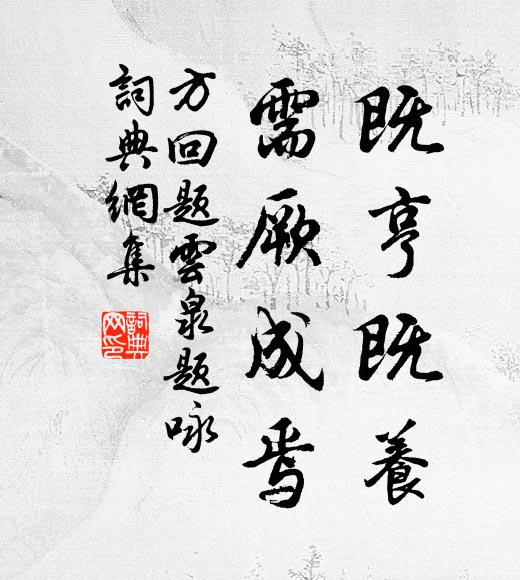 既亨既養
需厥成焉
方回題雲泉題咏
詞典網集
詞典
网印